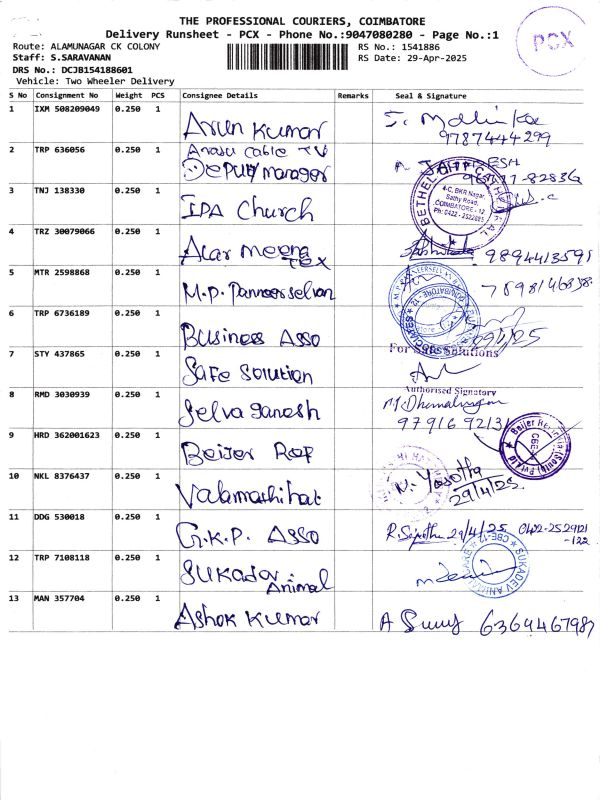 THE PROFESSIONAL COURIERS, COIMBATORE
Delivery Runsheet - PCX - Phone No.:9047080280 - Page No.:1
PCX
Route: ALAMUNAGAR CK COLONY
Staff: S.SARAVANAN
DRS No.: DCJB154188601
Vehicle: Two Wheeler Delivery
RS No.: 1541886
RS Date: 29-Apr-2025
S No Consignment No Weight PCS Consignee Details Remarks Seal & Signature
1 IXM 508209049 0.250 1 Arun Kumar
9787444299
2 TRP 636056 0.250 1 Arasu cable TV
Deputy Manager
3 TNJ 138330 0.250 1 IPA Church
4-C, BKR Nagar,
Sathy Road,
COIMBATORE - 12.
Ph: 0422 - 2522885
4 TRZ 30079066 0.250 1 Alar meena
TEX
9894413591
5 MTR 2598868 0.250 1 M.P. Panneerselvan
6 TRP 6736189 0.250 1 Business Asso
7 STY 437865 0.250 1 Safe Solution
For Safe Solutions
Authorised Signatory
8 RMD 3030939 0.250 1 Selva ganesh
9 HRD 362001623 0.250 1 Beijer Ref
10 NKL 8376437 0.250 1
N. Yasotha
29/4/25
11 DDG 530018 0.250 1 G.K.P. Asso
29/4/25 0422-2529121
-122
12 TRP 7108118 0.250 1 Sukadav
Animal
13 MAN 357704 0.250 1 Ashok Kumar